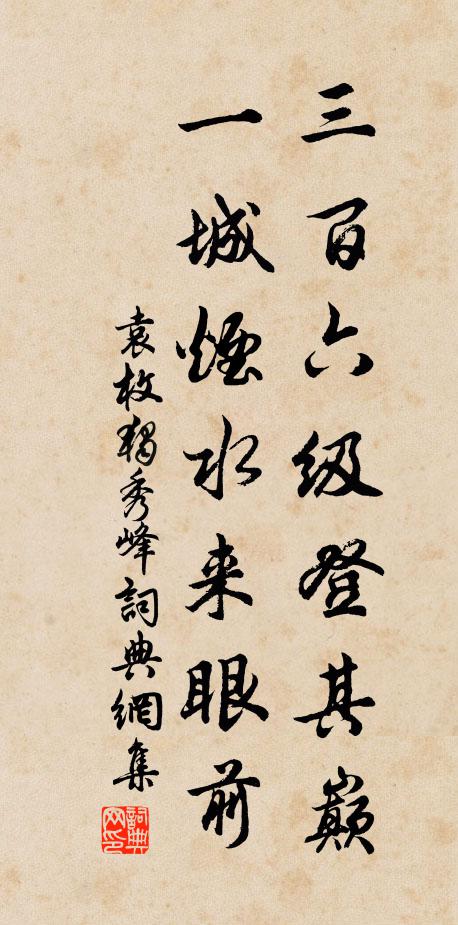 三百六级登其巅
一城煙水来眼前
袁枚獨秀峰詞典網集
詞典网印